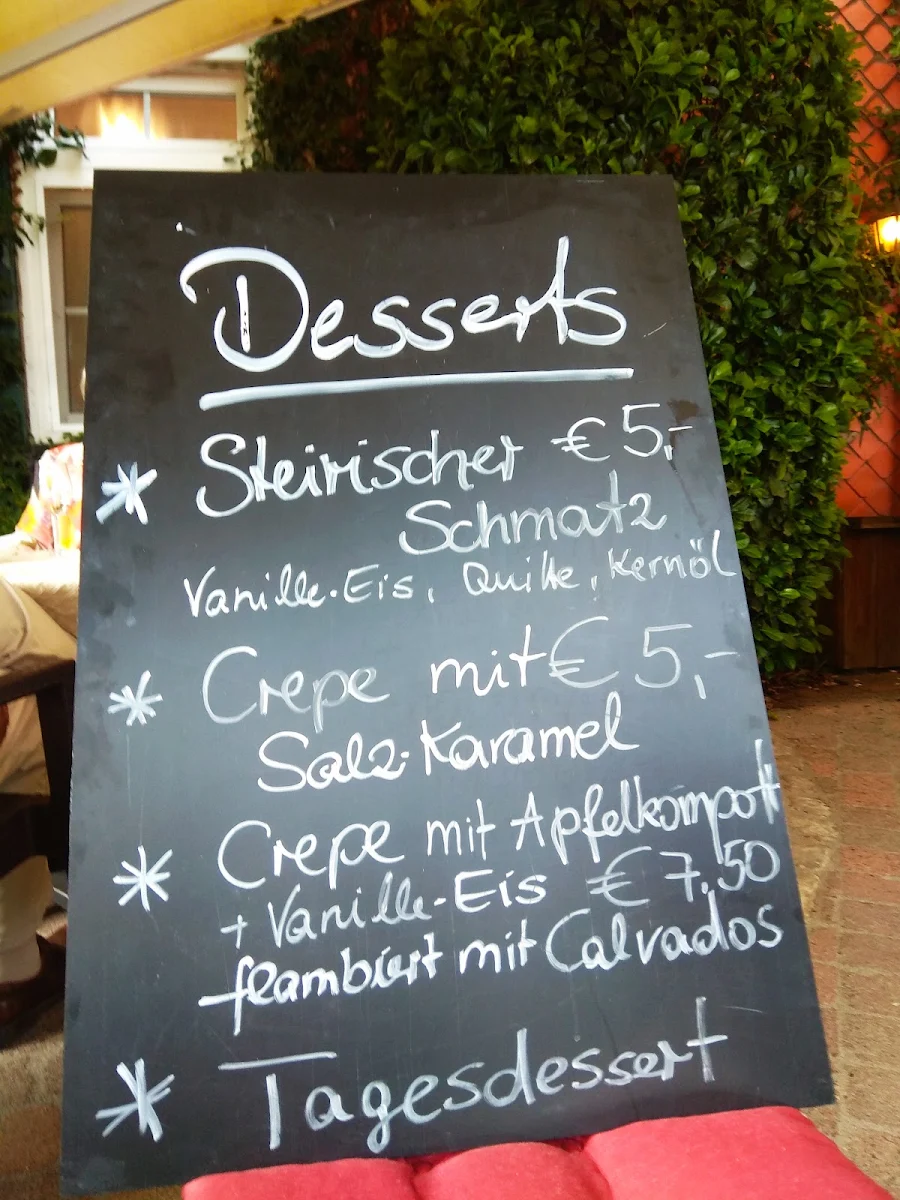 Desserts
* Steirischer € 5,-
Schmatz
Vanille-Eis, Quitte, Kernöl
* Crepe mit € 5,-
Salz-Karamel
* Crepe mit Apfelkompott
+ Vanille-Eis € 7,50
flambiert mit Calvados
* Tagesdessert